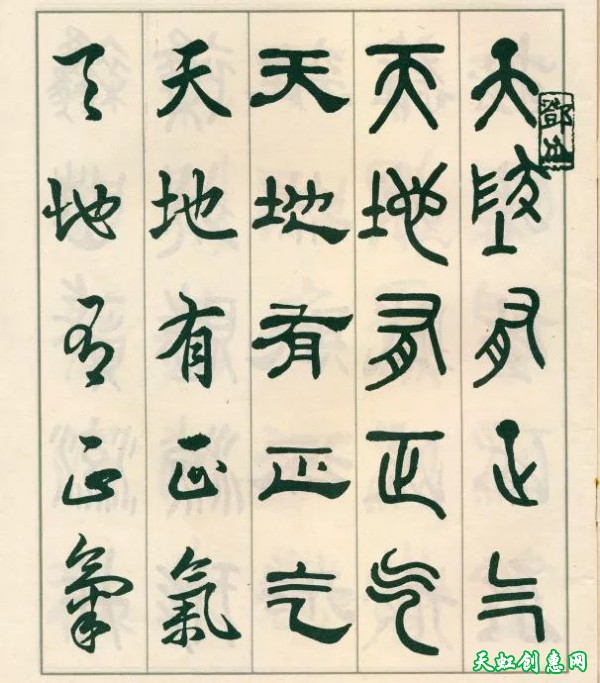 天地有正气
天地有正气
天地有正气
天地有正氣
天地有正氣
天虹创惠网